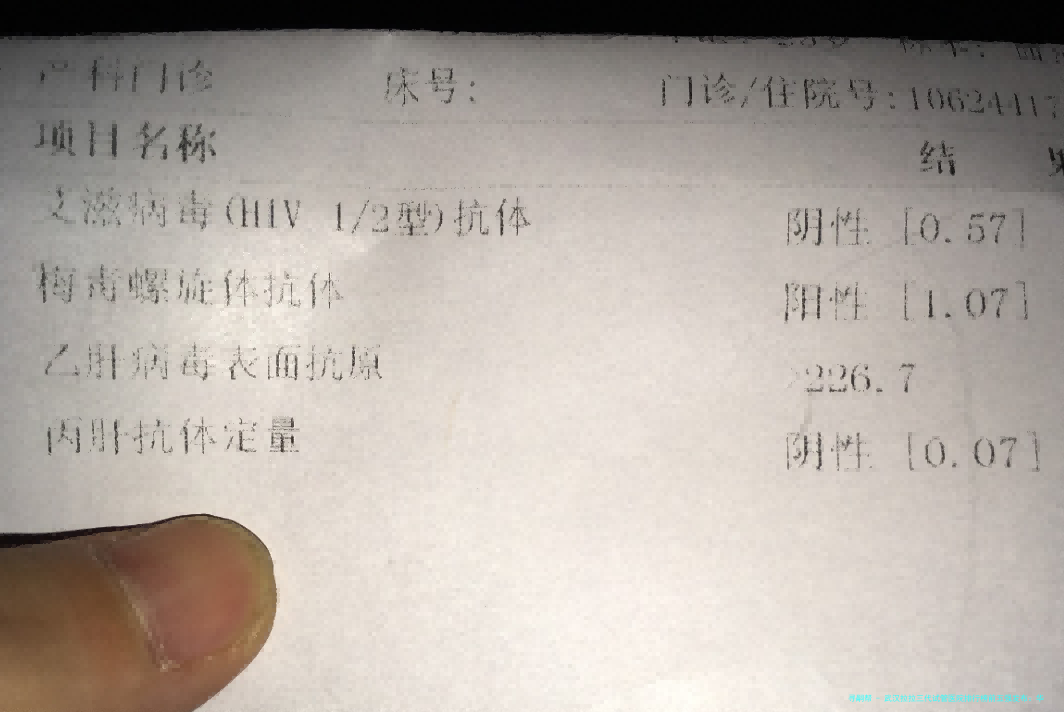 产科门诊 床号: 门诊/住院号:10624417
项目名称 结
艾滋病毒(HIV 1/2型)抗体 阴性 [0.57]
梅毒螺旋体抗体 阳性 [1.07]
乙肝病毒表面抗原 >226.7
丙肝抗体定量 阴性 [0.07]